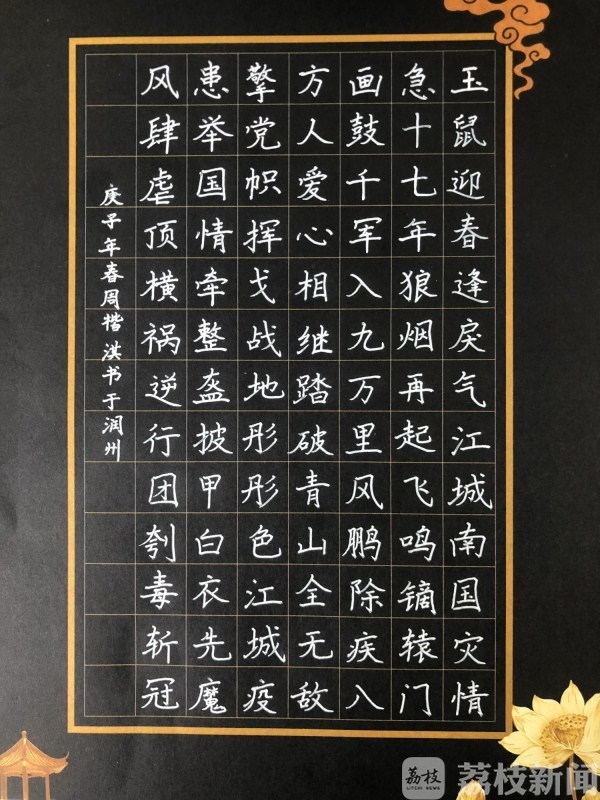 玉鼠迎春逢戾气江城南国灾情
急十七年狼烟再起飞鸣镝辕门
画鼓千军入九万里风鹏除疾八
方人爱心相继踏破青山全无敌
擎党帜挥戈战地彤彤色江城疫
患举国情牵整盔披甲白衣先魔
风肆虐顶横祸逆行团刳毒斩冠
庚子年春周楷淇书于润州
荔枝
LITCHI NEWS
荔枝新闻